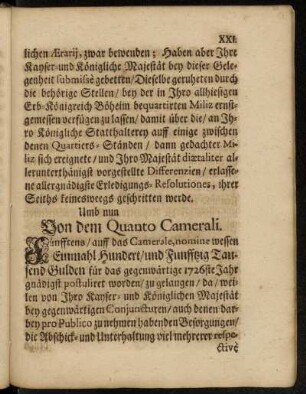 XXI.
lichen Ærarij, zwar bewenden; Haben aber Ihre
Kayser- und Königliche Majestät bey dieser Gele-
genheit submissè gebetten/ Dieselbe geruheten durch
die behörige Stellen/ bey der in Ihro allhiesigen
Erb-Königreich Böheim bequartirten Miliz ernst-
gemessen verfügen zu lassen/ damit über die/ an Ih-
ro Königliche Statthalterey auff einige zwischen
denen Quartiers-Ständen/ dann gedachter Mi-
liz sich ereignete/ und Ihro Majestät dictaliter al-
lerunterthänigst vorgestellte Differenzien/ erlasse-
ne allergnädigste Erledigungs-Resolutiones, ihrer
Seiths keineswegs geschritten werde.
Umb nun
Von dem Quanto Camerali.
Fünfftens/ auff das Camerale, nomine wessen
Einmahl Hundert/ und Funfftzig Tau-
send Gulden für das gegenwärtige 1726ste Jahr
gnädigst postuliret worden/ zu gelangen/ da/ wei-
len von Ihro Kayser- und Königlichen Majestät
bey gegenwärtigen Conjuncturen/ auch denen dar-
bey pro Publico zu nehmen habenden Besorgungen/
die Abschick- und Unterhaltung viel mehrerer respe-
ctivè